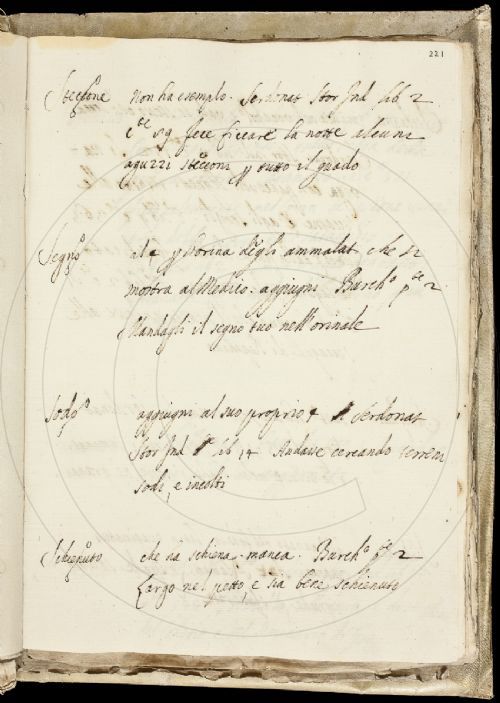 221
Steccone non ha esemplo. Serdonat Stor Ind lib 2
c.te 89 fece ficcare la notte alcuni
aguzzi stecconi p tutto il guado
Segno al § p Vorina degli ammalat che si
mostra al Medico. aggiugni Burch.o p.te 2.
Mandagli il segno tuo nell'orinale
Sodo aggiugni al suo proprio § Serdonat
Stor Ind lib 14 Andava cercando terreni
sodi, e incolti
Schienuto che ha schiena. manca. Burch.o p.te 2
Largo nel petto, e sia bene schienuto